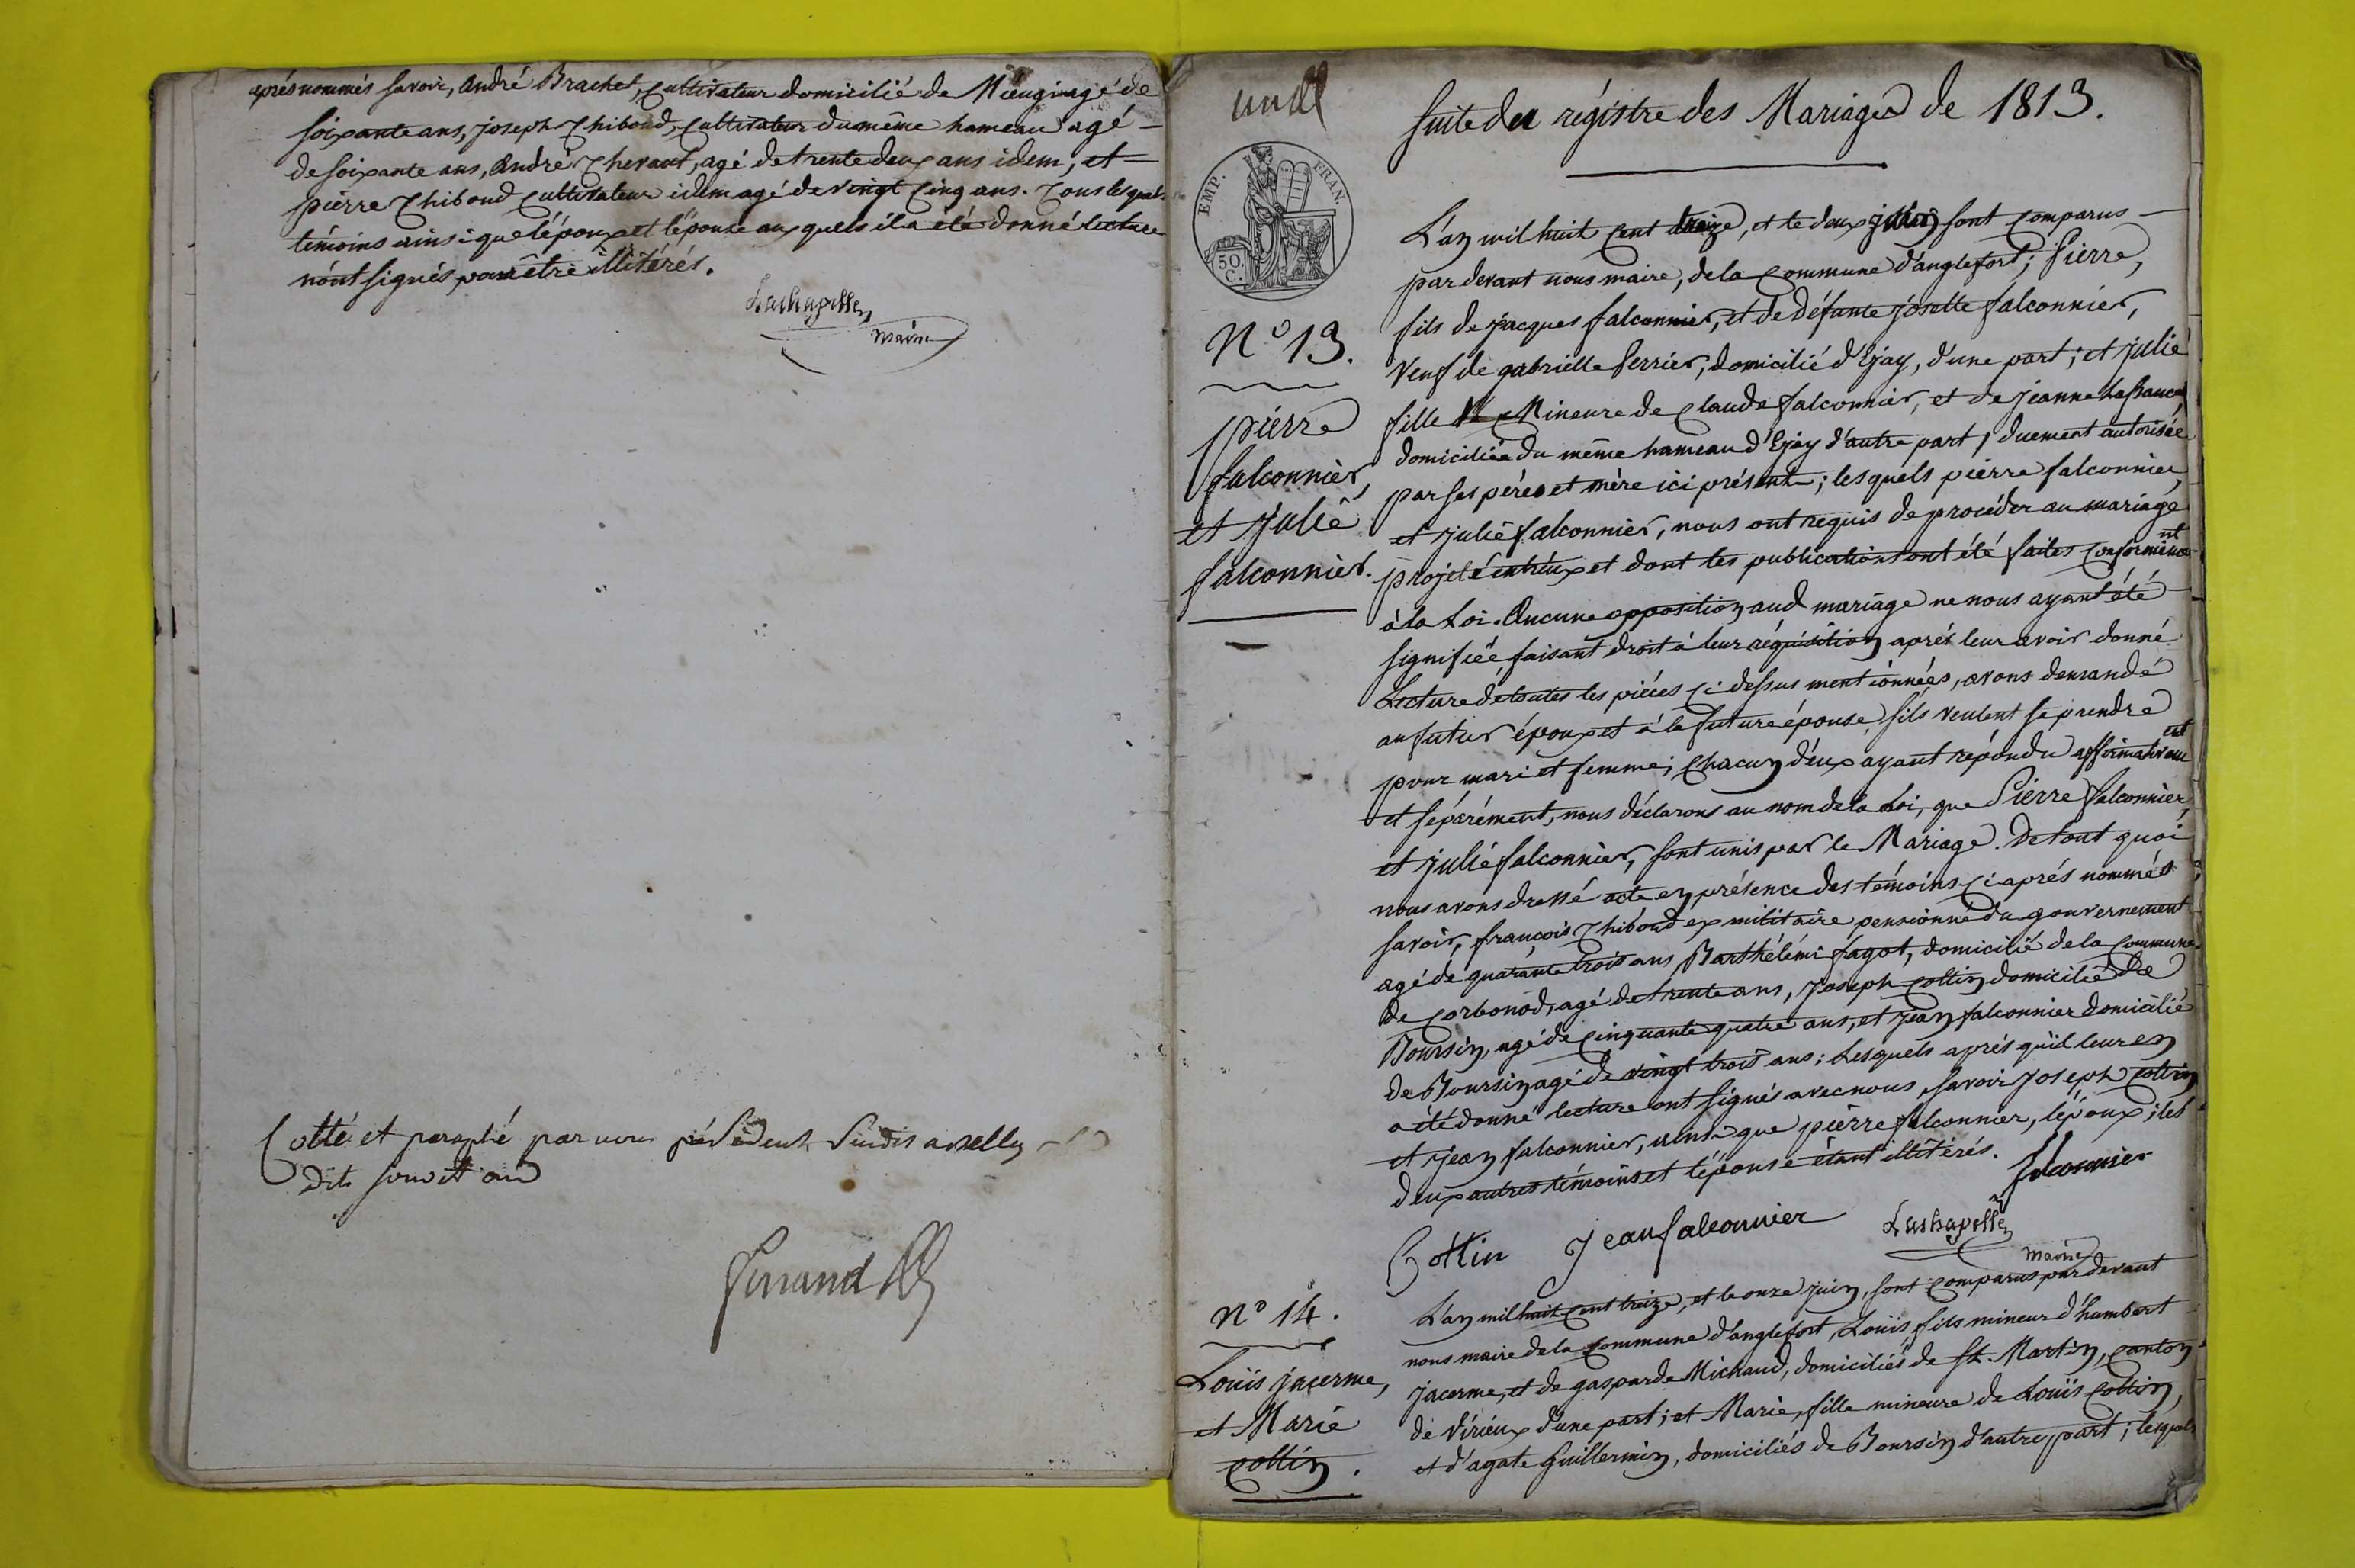 après nommés savoir, André Brachet, cultivateur domicilié de Mieugi agé de
soixante ans, joseph Thiboud, cultivateur du même hameau agé
de soixante ans, André Thevant, agé de trente deux ans idem, et
pierre Thiboud cultivateur idem agé de vingt cinq ans. Tous lesquels
témoins ainsi que l'époux et l'épouse auxquels il a été donné lecture
n'ont signés pour être illitérés.
Lachapelle
maire
Cotté et paraphé par nous président
dit
Ferrand
Suite du régistre des Mariages de 1813.
EMP. FRAN.
50.
C.
N° 13.
pierre
falconnier,
et Julie
falconnier.
L'an mil huit cent treize, et le deux juin sont comparus
par devant nous maire, de la commune d'anglefort; Pierre,
fils de jacques falconnier, et de défunte josette falconnier,
veuf de gabrielle ferrier, domicilié d'Ejay, d'une part; et julie
fille Mineure de Claude falconnier, et de jeanne Lafrance
domiciliée du même hameau d'Ejay d'autre part, duement autorisée
par ses pères et mère ici présents; lesquels pierre falconnier,
et julie falconnier, nous ont requis de procéder au mariage
projeté entr'eux et dont les publications ont été faites conformément
à la Loi. Aucune opposition aud mariage ne nous ayant été
signifiée, faisant droit à leur réquisition après leur avoir donné
Lecture de toutes les pièces ci dessus mentionnées, avons demandé
au futur époux et à la future épouse, s'ils veulent se prendre
pour mari et femme; chacun d'eux ayant répondu affirmativement
et séparément, nous déclarons au nom de la Loi, que Pierre falconnier,
et julie falconnier, sont unis par le Mariage. De tout quoi
nous avons dressé acte en présence des témoins ci après nommés
savoir, françois Thiboud ex militaire pensionné du gouvernement
agé de quarante trois ans, Barthélémi fagot, domicilié de la commune
de Corbonod, agé de trente ans, joseph Cottin domicilié de
Boursin, agé de cinquante quatre ans, et jean falconnier domicilié
de Boursin agé de vingt trois ans; Lesquels après qu'il leur en
a été donné lecture ont signés avec nous, savoir Joseph Cottin
et jean falconnier, ainsi que pierre falconnier, l'époux; les
deux autres témoins et l'épouse étant illitérés.
falconnier
Cottin Jean falconnier Lachapelle
maire
N° 14.
Louis jacerme,
et Marie
Cottin.
L'an mil huit cent treize, et le onze juin, sont comparus par devant
nous maire de la commune d'anglefort, Louis fils mineur d'humbert
jacerme, et de gasparde Michaud, domiciliés de St. Martin, canton
de Virieux d'une part; et Marie, fille mineure de Louis Cottin,
et d'agate Guillermin, domiciliés de Boursin d'autre part; lesquels